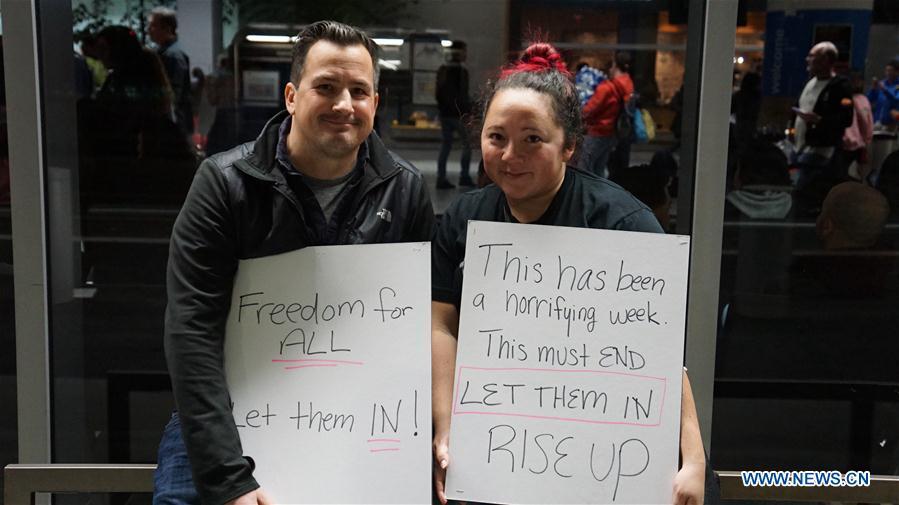 Freedom for
ALL
Let them IN!
This has been
a horrifying week.
This must END
LET THEM IN
RISE UP
welcome
WWW.NEWS.CN